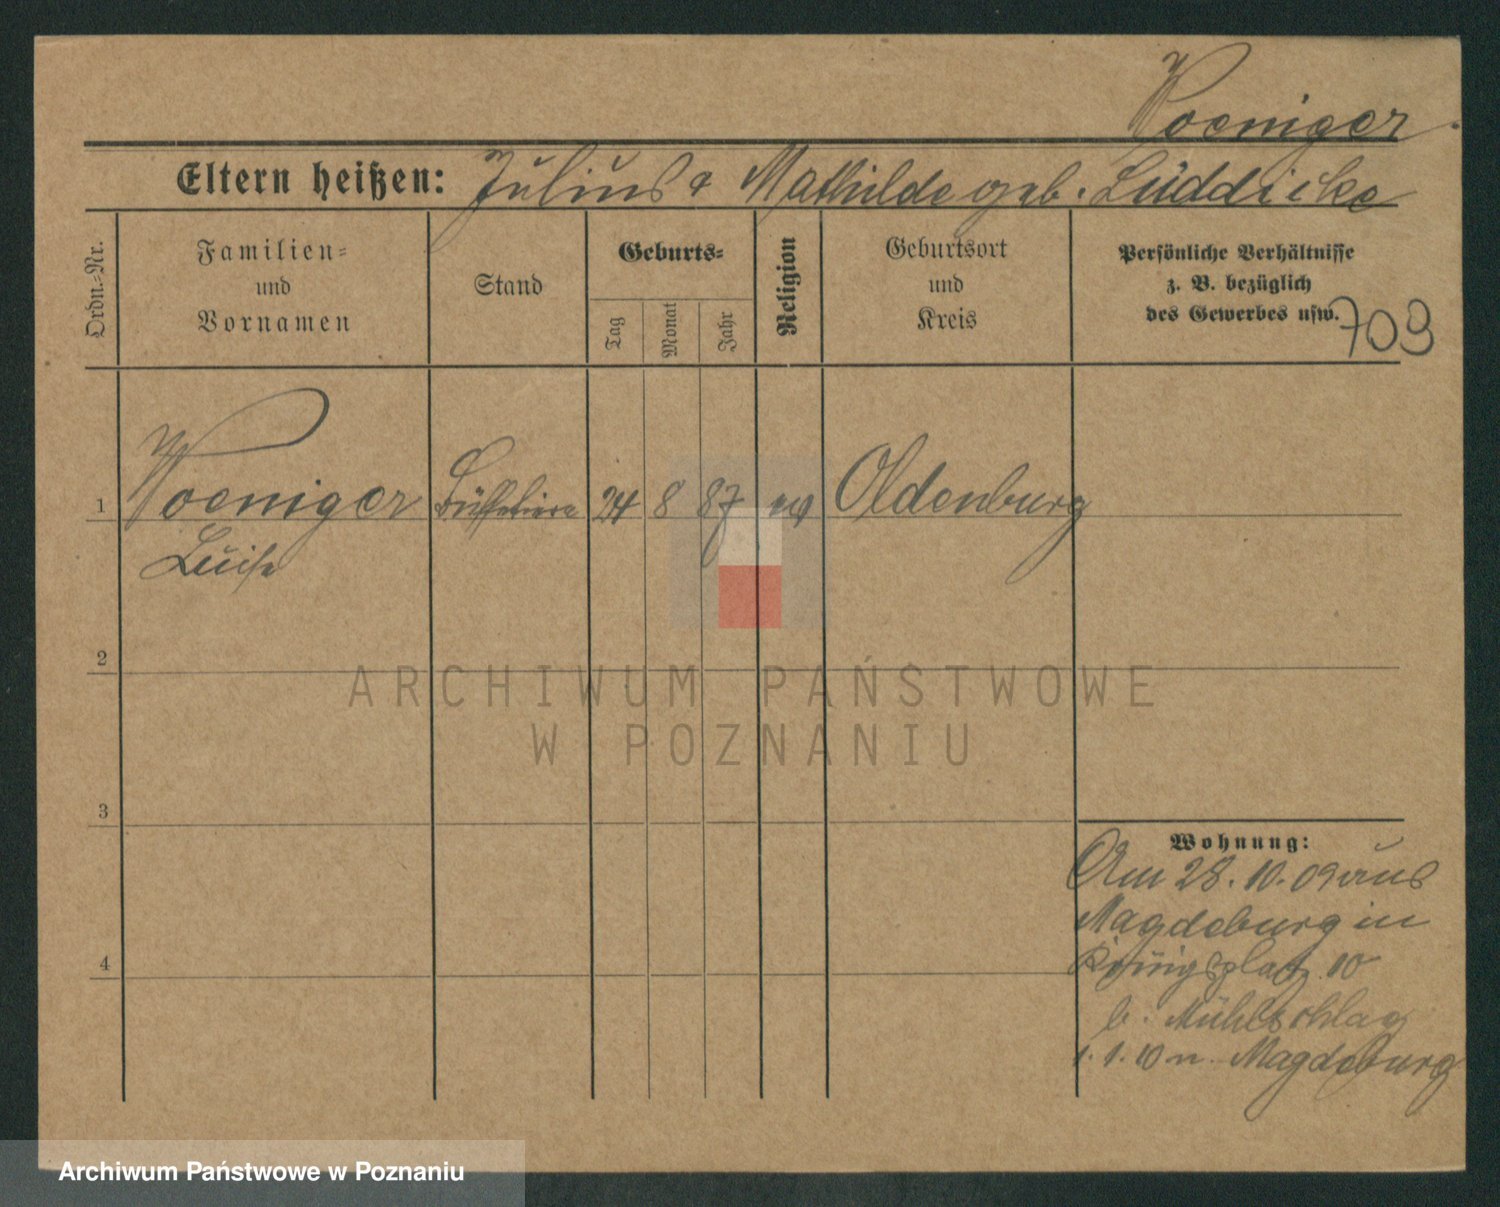 Koeniger
Eltern heißen: Julius & Mathilde geb. Lüddicke
Ordn.-Nr.
Familien-
und
Vornamen
Stand
Geburts-
Tag
Monat
Jahr
Religion
Geburtsort
und
Kreis
Persönliche Verhältnisse
z. B. bezüglich
des Gewerbes usw.
709
1 Koeniger Büffetiere 24 8 87 ev Oldenburg
Luise
2
3
4
Wohnung:
Am 28.10.09 aus
Magdeburg in
Königsplatz 10
b. Mühlschlag
1.1.10 n. Magdeburg
ARCHIWUM PAŃSTWOWE
W POZNANIU
Archiwum Państwowe w Poznaniu